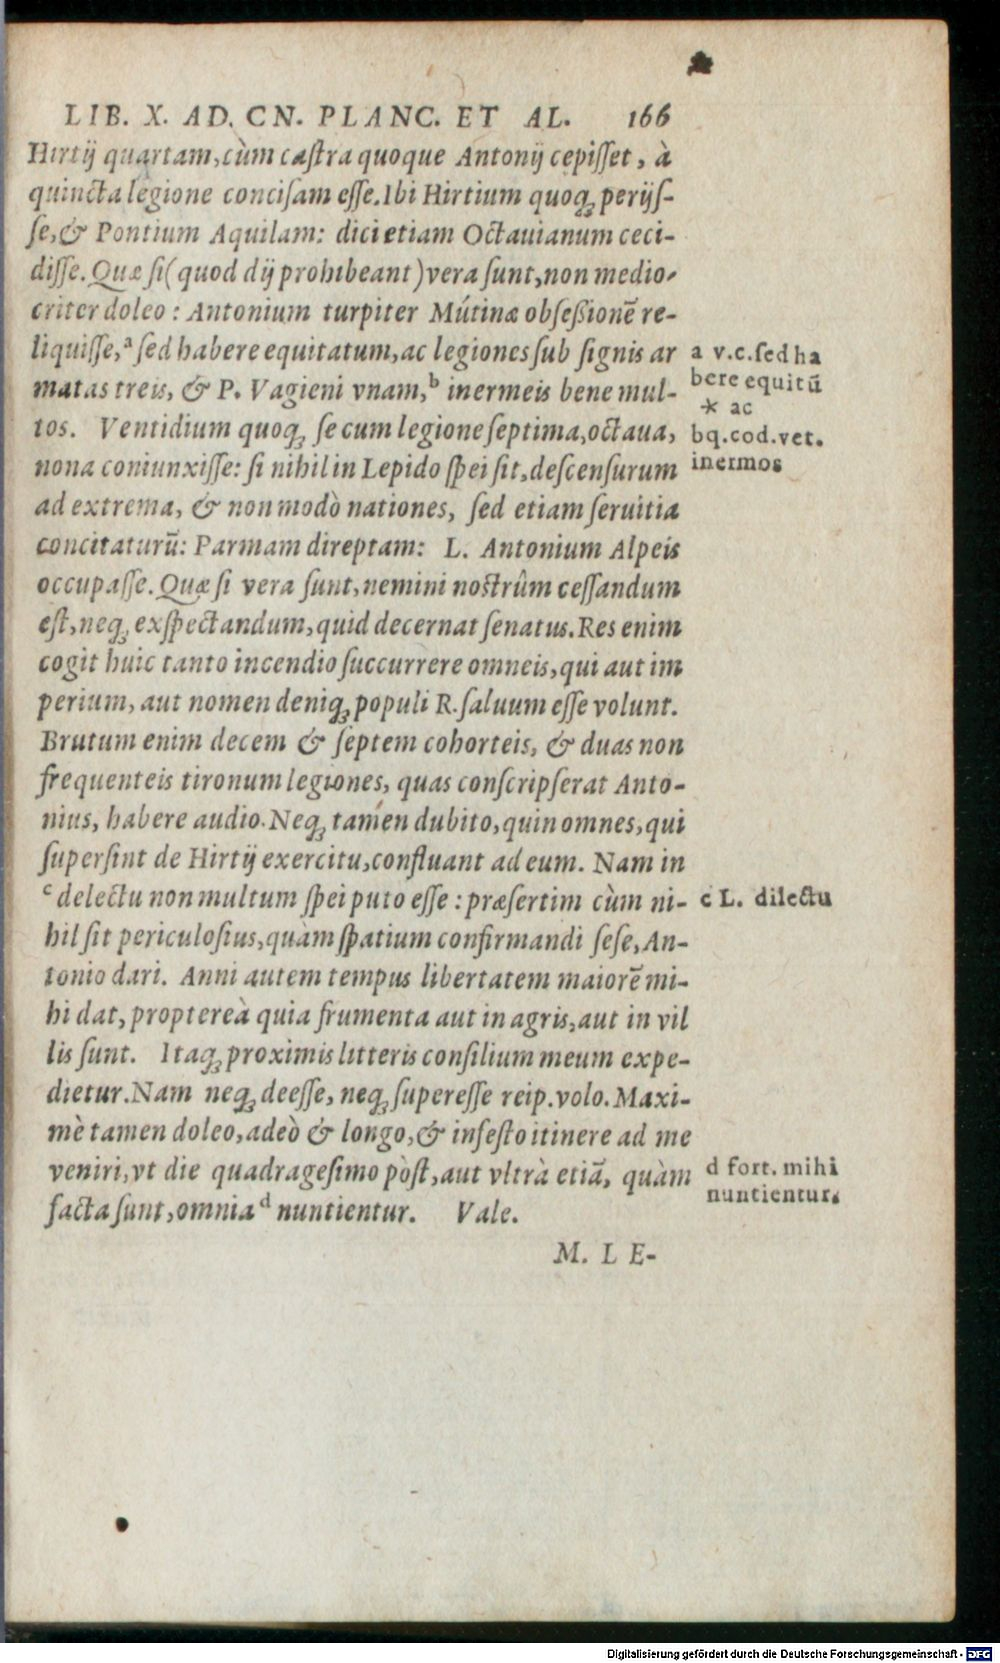 LIB. X. AD. CN. PLANC. ET AL. 166
Hirtij quartam, cùm castra quoque Antonij cepisset, à
quincta legione concisam esse. Ibi Hirtium quoq; perijs-
se, & Pontium Aquilam: dici etiam Octauianum ceci-
disse. Quæ si (quod dij prohibeant) vera sunt, non medio-
criter doleo: Antonium turpiter Mútinæ obseßionē re-
liquisse, a sed habere equitatum, ac legiones sub signis ar
matas treis, & P. Vagieni vnam, b inermeis bene mul-
tos. Ventidium quoq; se cum legione septima, octaua,
nona coniunxisse: si nihil in Lepido spei sit, descensurum
ad extrema, & non modò nationes, sed etiam seruitia
concitaturū: Parmam direptam: L. Antonium Alpeis
occupasse. Quæ si vera sunt, nemini nostrûm cessandum
est, neq; exspectandum, quid decernat senatus. Res enim
cogit huic tanto incendio succurrere omneis, qui aut im
perium, aut nomen deniq; populi R. saluum esse volunt.
Brutum enim decem & septem cohorteis, & duas non
frequenteis tironum legiones, quas conscripserat Anto-
nius, habere audio. Neq; tamen dubito, quin omnes, qui
supersint de Hirtij exercitu, confluant ad eum. Nam in
c delectu non multum spei puto esse: præsertim cùm ni-
hil sit periculosius, quàm spatium confirmandi sese, An-
tonio dari. Anni autem tempus libertatem maiorē mi-
hi dat, proptereà̖ quia frumenta aut in agris, aut in vil
lis sunt. Itaq; proximis litteris consilium meum expe-
dietur. Nam neq; deesse, neq; superesse reip. volo. Maxi-
mè tamen doleo, adeò & longo, & infesto itinere ad me
veniri, vt die quadragesimo pòst, aut vltrà etiā, quàm
facta sunt, omnia d nuntientur. Vale.
M. LE-
a v.c. sed ha
bere equitū
* ac
bq. cod. vet.
inermos
c L. dilectu
d fort. mihi
nuntientur.
Digitalisierung gefördert durch die Deutsche Forschungsgemeinschaft - DFG